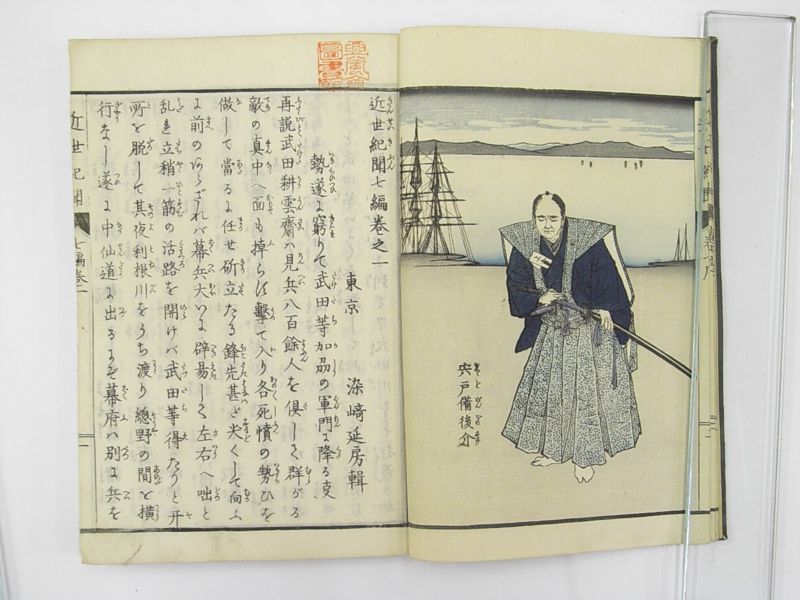 宍戸備後介
近世紀聞七編巻之一
東京 染崎延房輯
勢遂に窮りて武田等加刕の軍門に降る支
再説武田耕雲齋ハ見兵八百餘人を倶して群がる
敵の真中へ面も掉らず撃て入り各死憤の勢ひを
做して當るに任せ斫立たる鋒先甚ど尖くして向ふ
に前のあらざれバ幕兵大いに辟易して左右へ咄と
乱れ立稍一筋の活路を開けバ武田等得たりと开
所を脱して其夜利根川をうち渡り總野の間を横
行なし遂に中仙道に出るにぞ幕府ハ別に兵を
近世紀聞 七編巻一